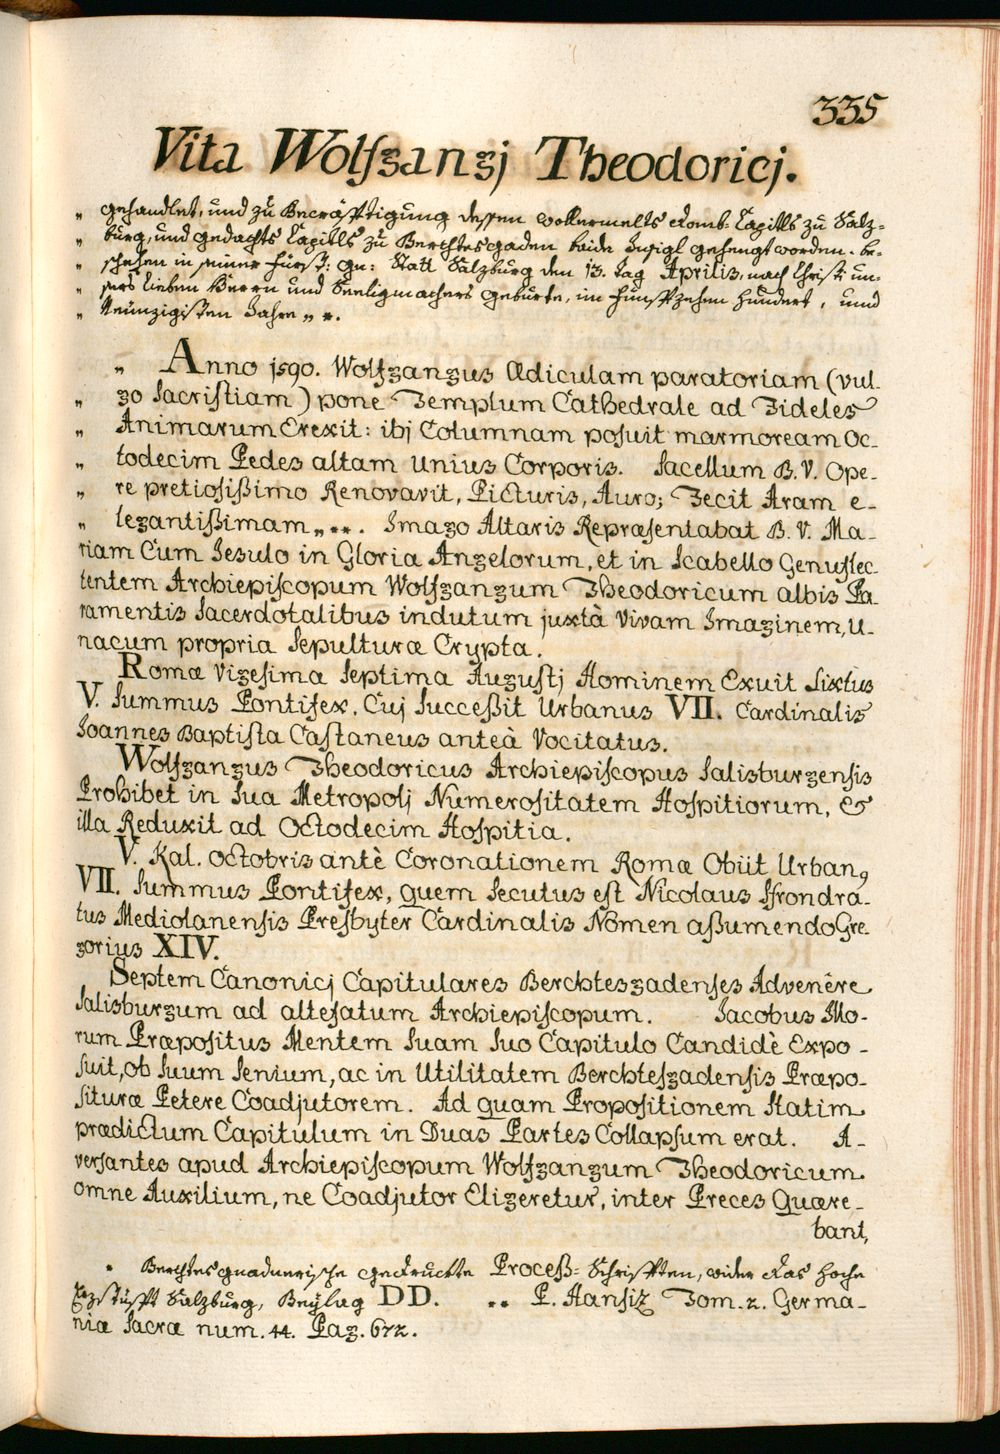 335
Vita Wolfgangj Theodoricj.
„ gehandlet, und zu Becräfftigung dessen wollermelts Domb: Capitls zu Salz-
„ burg, und gedachts Capitls zu Berchtesgaden beide Insigl gehengt worden. be-
„ schehen in seiner Fürst: Gn: Statt Salzburg den 13. Tag Aprilis, nach Christi un-
„ sers lieben Herrn und Seeligmachers geburte, im funfftzehen hundert, und
„ Neünzigisten Jahre „ *.
„ Anno 1590. Wolfgangus Ædiculam paratoriam (vul-
„ go Sacristiam) pone Templum Cathedrale ad Fideles
„ Animarum Erexit: ibj Columnam posuit marmoream Oc-
„ todecim Pedes altam unius Corporis. Sacellum B. V. Ope-
„ re pretiosißimo Renovavit, Picturis, Auro; Fecit Aram e-
„ legantißimam „ **. Imago Altaris Repræsentabat B. V. Ma-
riam Cum Jesulo in Gloria Angelorum, et in Scabello Genuflec-
tentem Archiepiscopum Wolfgangum Theodoricum albis Pa-
ramentis Sacerdotalibus indutum juxtà Vivam Imaginem, u-
nacum propria Sepulturæ Crypta.
Romæ Vigesima Septima Augustj Hominem Exuit Sixtus
V. Summus Pontifex, Cuj Succeßit Urbanus VII. Cardinalis
Joannes Baptista Castaneus anteà Vocitatus.
Wolfgangus Theodoricus Archiepiscopus Salisburgensis
Prohibet in Sua Metropolj Numerositatem Hospitiorum, &
illa Reduxit ad Octodecim Hospitia.
V. Kal. Octobris antè Coronationem Romæ Obiit Urban9
VII. Summus Pontifex, quem Secutus est Nicolaus Sfrondra-
tus Mediolanensis Presbyter Cardinalis Nomen aßumendo Gre-
gorius XIV.
Septem Canonicj Capitulares Berchtesgadenses Advenêre
Salisburgum ad altefatum Archiepiscopum. Jacobus Mo-
rum Præpositus Mentem Suam Suo Capitulo Candidè Expo-
suit, ob Suum Senium, ac in Utilitatem Berchtesgadensis Præpo-
situræ Petere Coadjutorem. Ad quam Propositionem Statim
prædictum Capitulum in Duas Partes Collapsum erat. A-
versantes apud Archiepiscopum Wolfgangum Theodoricum
omne Auxilium, ne Coadjutor Eligeretur, inter Preces Quære-
bant,
* Berchtesgnadnerische gedruckte Proceß-Schrifften, wider das Hoche
Erzstüfft Salzburg, Beylag DD. ** P. Hansiz Tom. 2. Germa-
niæ Sacræ num. 44. Pag. 672.